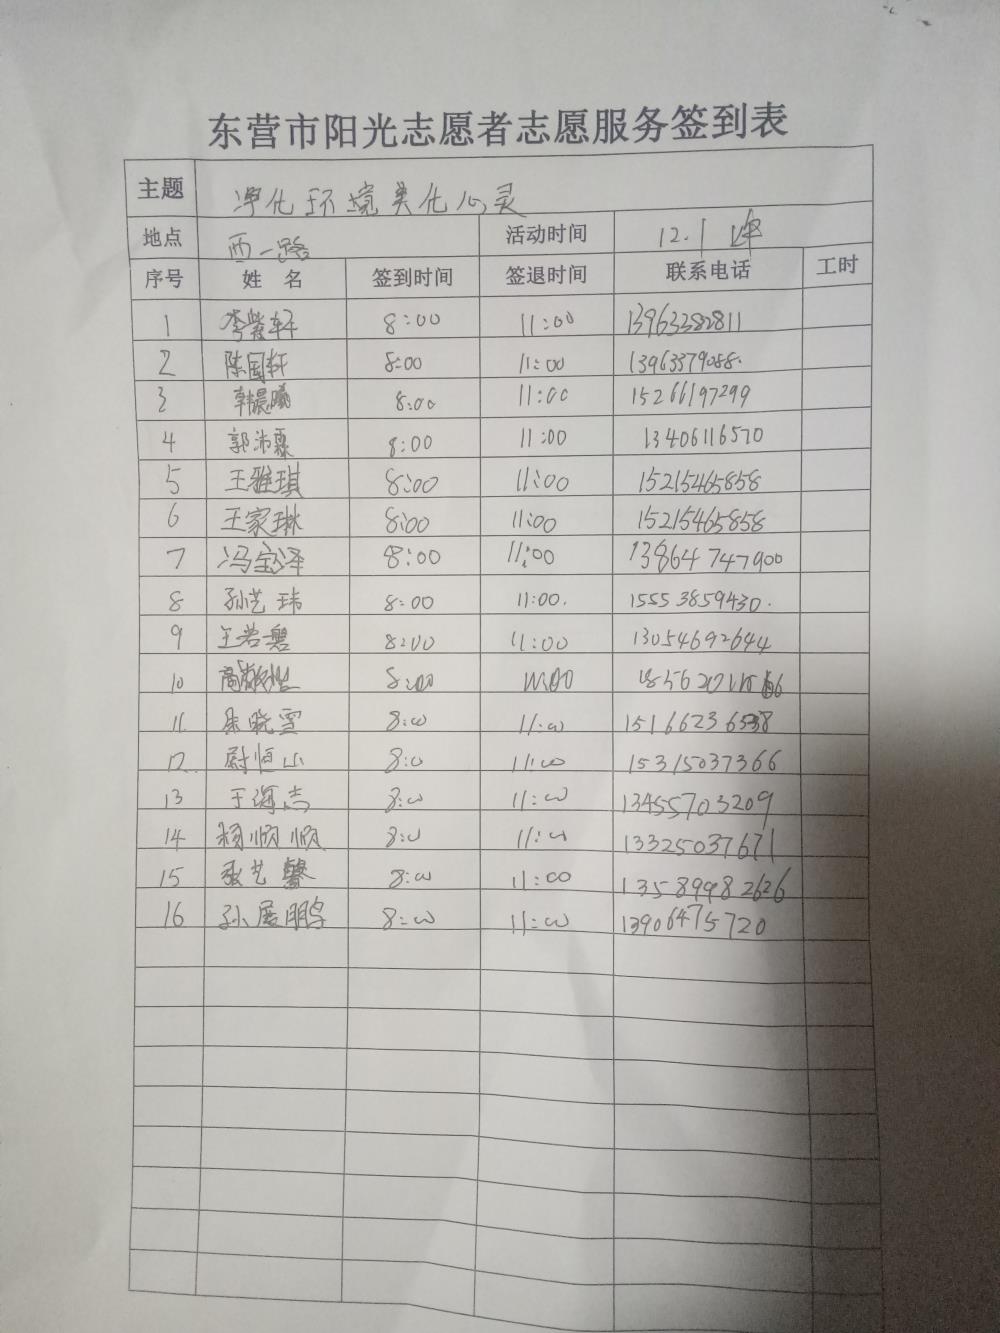 东营市阳光志愿者志愿服务签到表
主题 净化环境美化心灵
地点 西一路 活动时间 12.1
序号 姓名 签到时间 签退时间 联系电话 工时
1 李紫轩 8:00 11:00 13963382811
2 陈国轩 8:00 11:00 13963379088.
3 韩晨曦 8:00 11:00 15266197299
4 郭沛霖 8:00 11:00 13406116570
5 王雅琪 8:00 11:00 15215465858
6 王家琳 8:00 11:00 15215465858
7 冯宝泽 8:00 11:00 13864747900
8 孙艺玮 8:00 11:00. 15553859430.
9 王若 8:00 11:00 13054692644
10 高 8:00 11:00
11 晓雪 8:00 11:00
12 尉恒山 8:00 11:00 15315037366
13 于海志 8:00 11:00 13455703209
14 杨顺顺 8:00 11:00 13325037671
15 张艺馨 8:00 11:00 13589982626
16 孙展鹏 8:00 11:00 13906475720